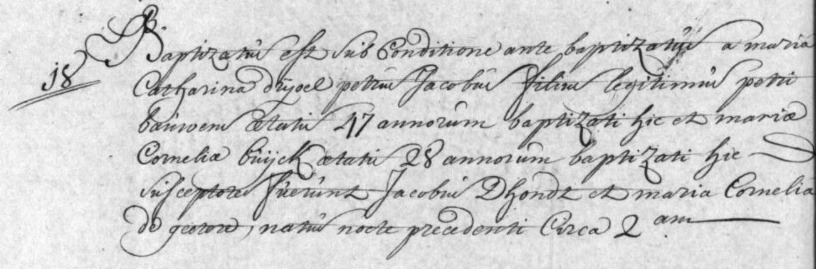 18 Baptizatus est sub Conditione ante baptizatus a maria
Catharina petrus Jacobus filius legitimus petri
bauwens ætatis 47 annorum baptizati hic et mariæ
Corneliæ buijck ætatis 28 annorum baptizati hic
susceptores fuerunt Jacobus Dhondt et maria Cornelia
de natus nocte precedenti Circa 2 am